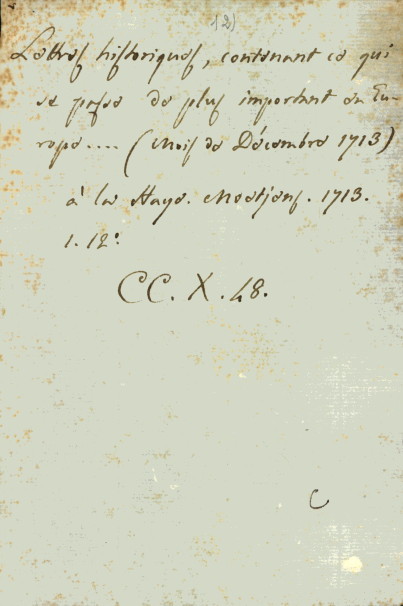 12)
Lettres historiques, contenant ce qui
se passe de plus important en Eu-
rope.... (Mois de Décembre 1713)
à la Haye. Moetjens. 1713.
1. 12°.
CC. X. 48.
C